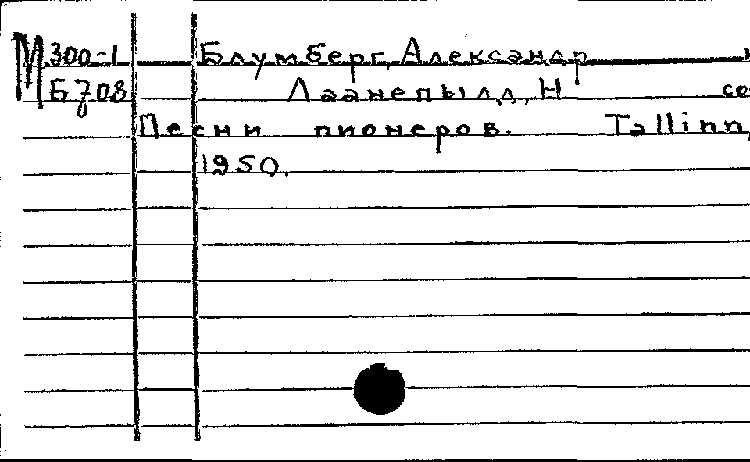 М 300-1 Блумберг, Александр и
Б708 Лаанепылд, Н со
Песни пионеров. Tallinn,
1950.